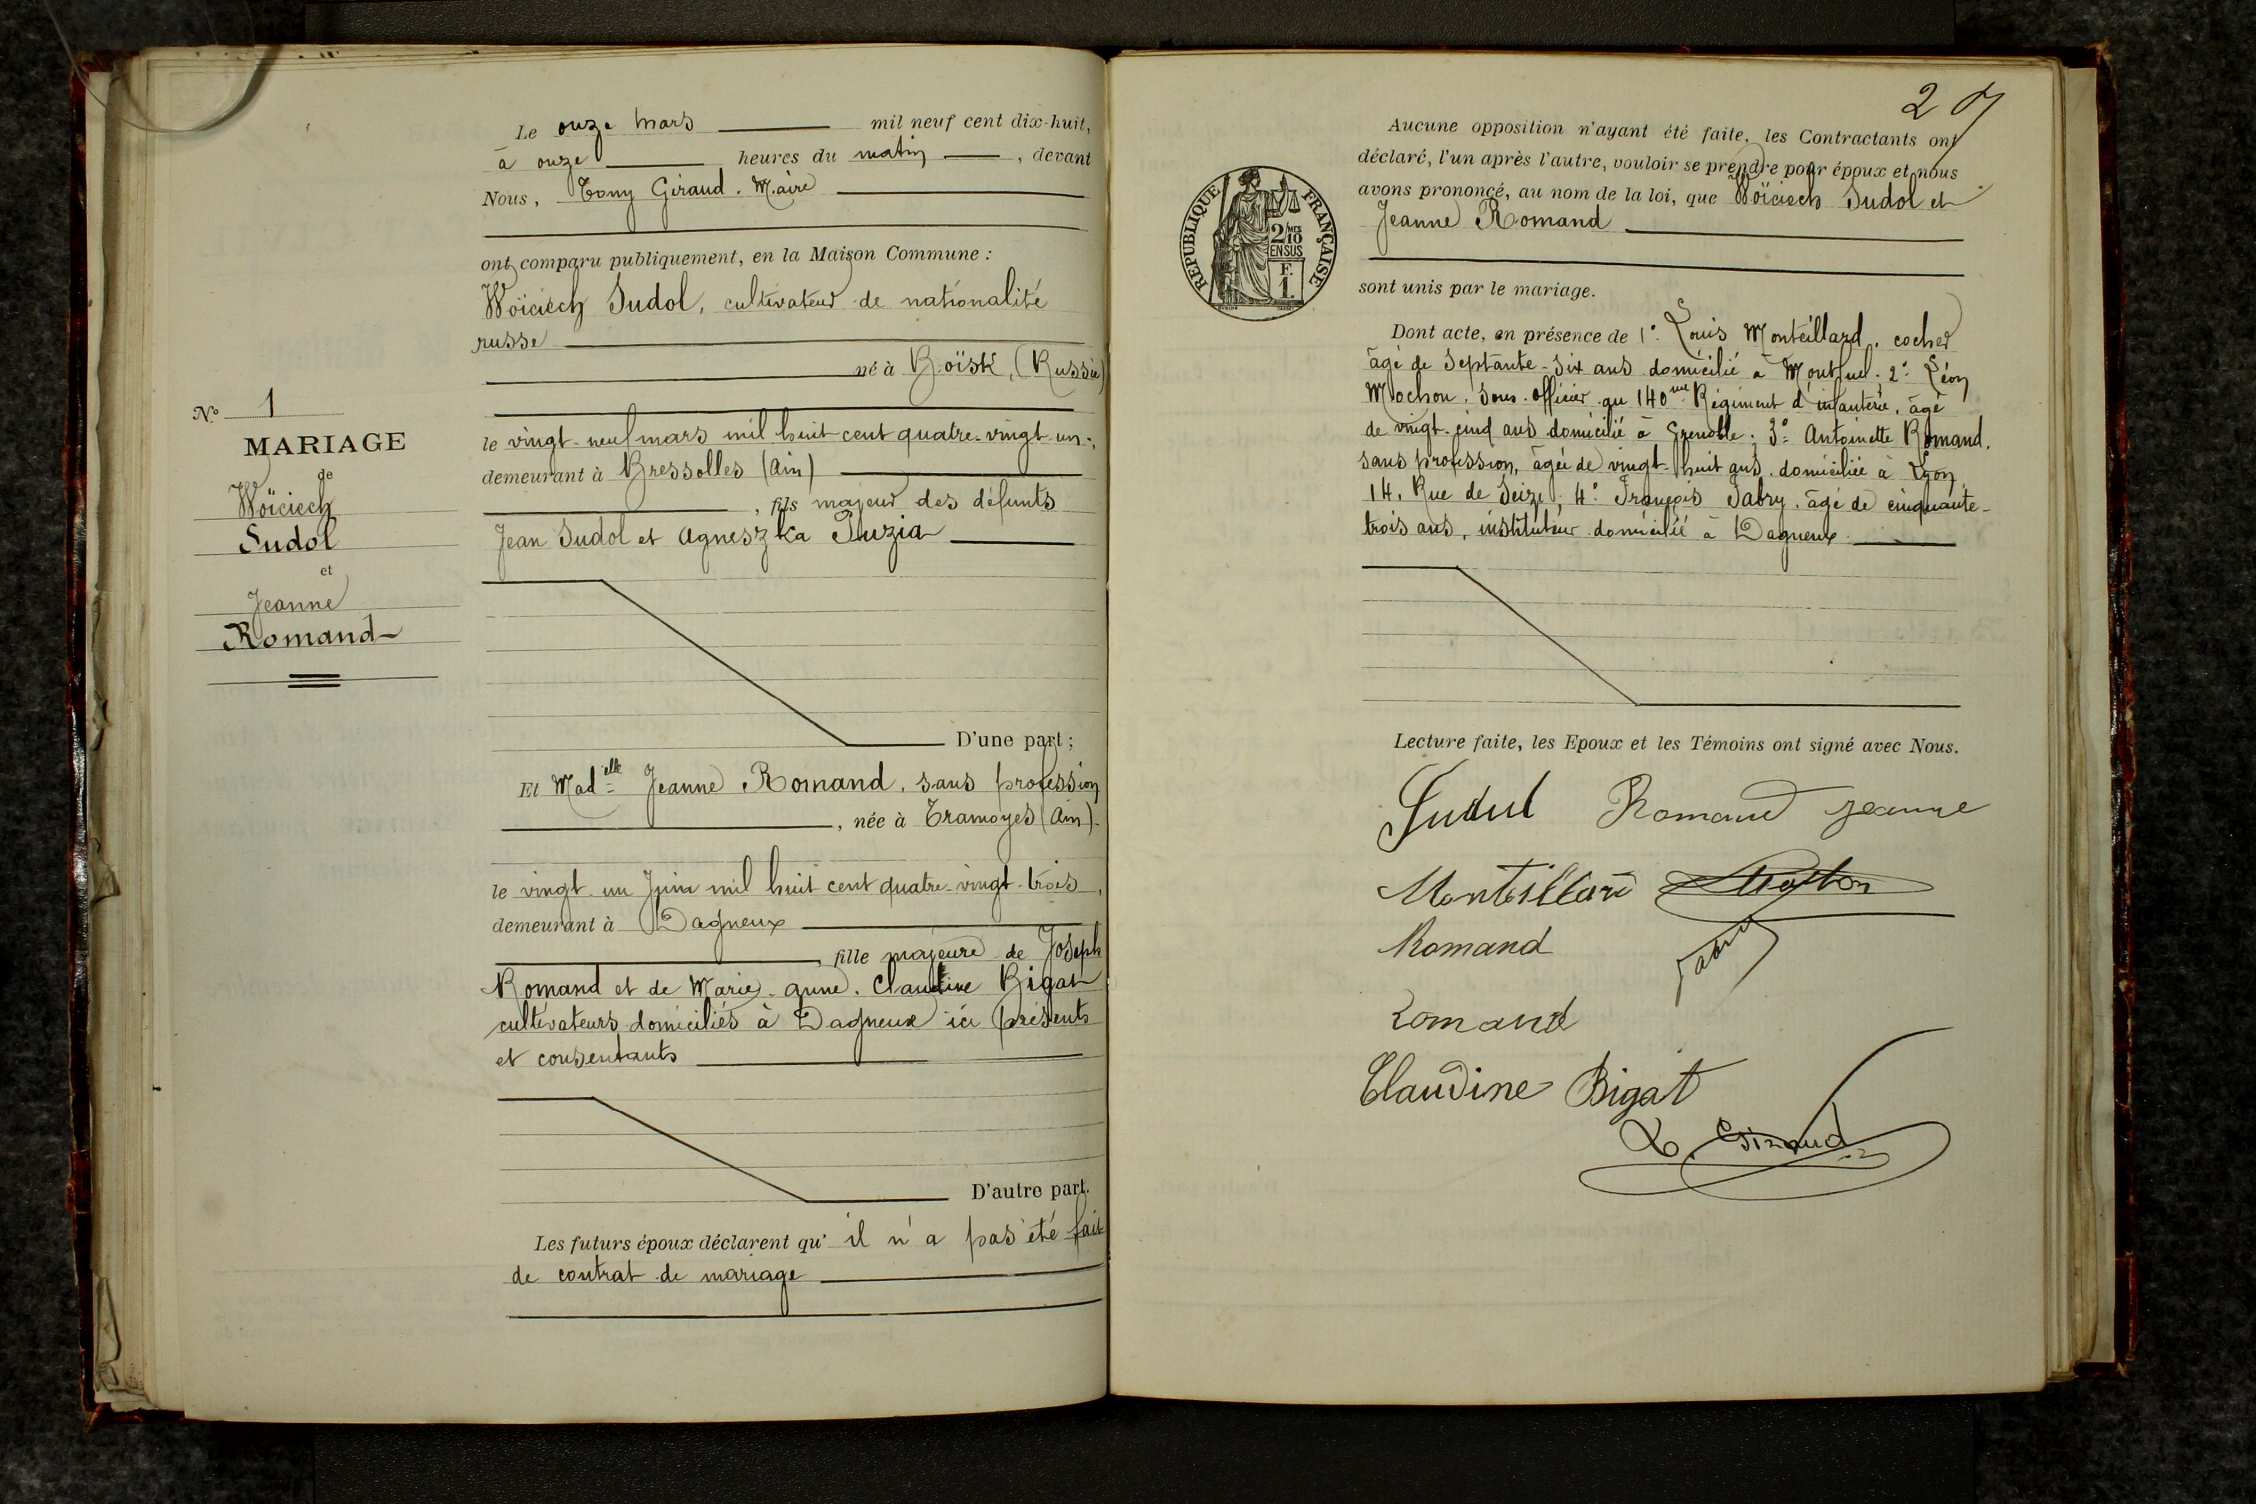 Le onze mars mil neuf cent dix-huit,
à onze heures du matin, devant
Nous, Tony Giraud. Maire
ont comparu publiquement, en la Maison Commune :
Woïciech Sudol, cultivateur de nationalité
russe
né à Boïsk, (Russie)
le vingt-neuf mars mil huit cent quatre-vingt-un,
demeurant à Bressolles (Ain)
, fils majeur des défunts
Jean Sudol et Agneszka Puzia
D'une part ;
Et Mad elle Jeanne Romand, sans profession
, née à Tramoyes (Ain).
le vingt un Juin mil huit cent quatre-vingt-trois,
demeurant à Dagneux
, fille majeure de Joseph
Romand et de Marie-Anne-Claudine Bigat
cultivateurs domiciliés à Dagneux ici présents
et consentants
D'autre part.
Les futurs époux déclarent qu' il n'a pas été fait
de contrat de mariage
N° 1
MARIAGE
de
Woïciech
Sudol
et
Jeanne
Romand
2
Aucune opposition n'ayant été faite, les Contractants ont
déclaré, l'un après l'autre, vouloir se prendre pour époux et nous
avons prononcé, au nom de la loi, que Woïciech Sudol et
Jeanne Romand
sont unis par le mariage.
Dont acte, en présence de 1° Louis Monteillard, cocher
âgé de Septante-six ans domicilié à Montluel. 2° Léon
Mochon, Sous-Officier au 140me Régiment d'infanterie, âgé
de vingt-cinq ans domicilié à Grenoble; 3° Antoinette Romand,
sans profession, âgée de vingt-huit ans, domiciliée à Lyon,
14, Rue de Sèze; 4° François Fabry, âgé de cinquante-
trois ans, instituteur domicilié à Dagneux.
Lecture faite, les Epoux et les Témoins ont signé avec Nous.
Sudul Romand Jeanne
Monteillard Mochon
Romand Fabry
Romand
Claudine Bigat
Giraud
REPUBLIQUE FRANÇAISE
2/10 MES
EN SUS
F.
1.